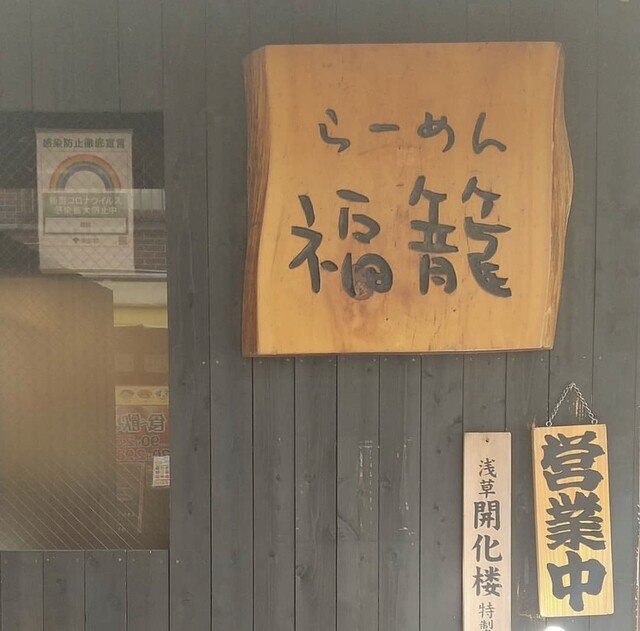 らーめん
福籠
営業中
浅草開化楼特製
感染防止徹底宣言
新型コロナウイルス
感染拡大防止中